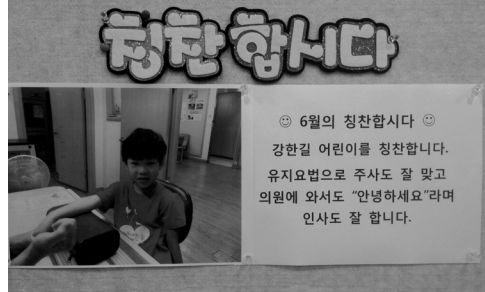 칭찬합시다
☺ 6월의 칭찬합시다 ☺
강한길 어린이를 칭찬합니다.
유지요법으로 주사도 잘 맞고
의원에 와서도 "안녕하세요"라며
인사도 잘 합니다.